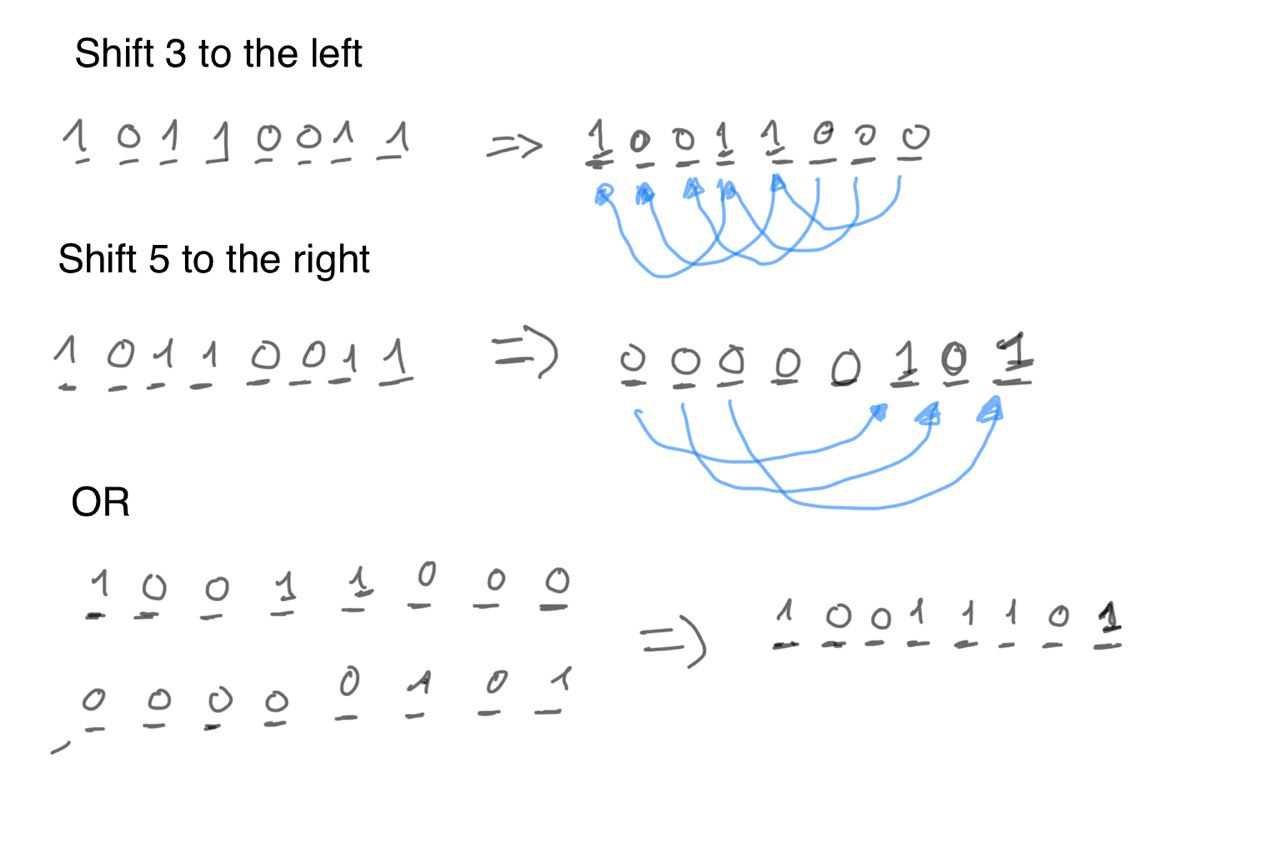 Shift 3 to the left
1 0 1 1 0 0 1 1 => 1 0 0 1 1 0 0 0
Shift 5 to the right
1 0 1 1 0 0 1 1 => 0 0 0 0 0 1 0 1
OR
1 0 0 1 1 0 0 0
=> 1 0 0 1 1 1 0 1
0 0 0 0 0 1 0 1